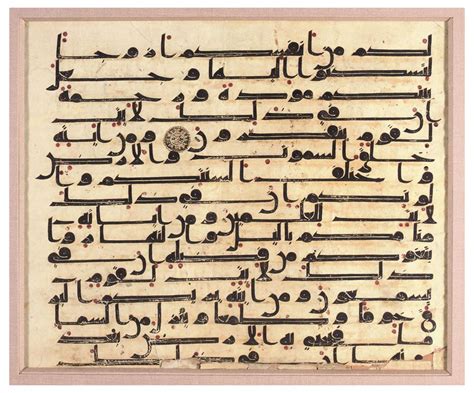 لكم من انفسكم ازوجا
لتسكنوا اليها وجعل
بينكم مودة ورحمة
ان في ذلك لايت
لقوم يتفكرون ومن ايته
خلق السموت والار
ض واختلف السنتكم وا
لونكم ان في ذلك
لايت للعلمين ومن ايته
منامكم باليل والنهار وا
بتغاوكم من فضله ان في
ذلك لايت لقوم
يسمعون ومن ايته يريكم البر
ق خوفا وطمعا وينزل من السما
ما فيحي به الارض